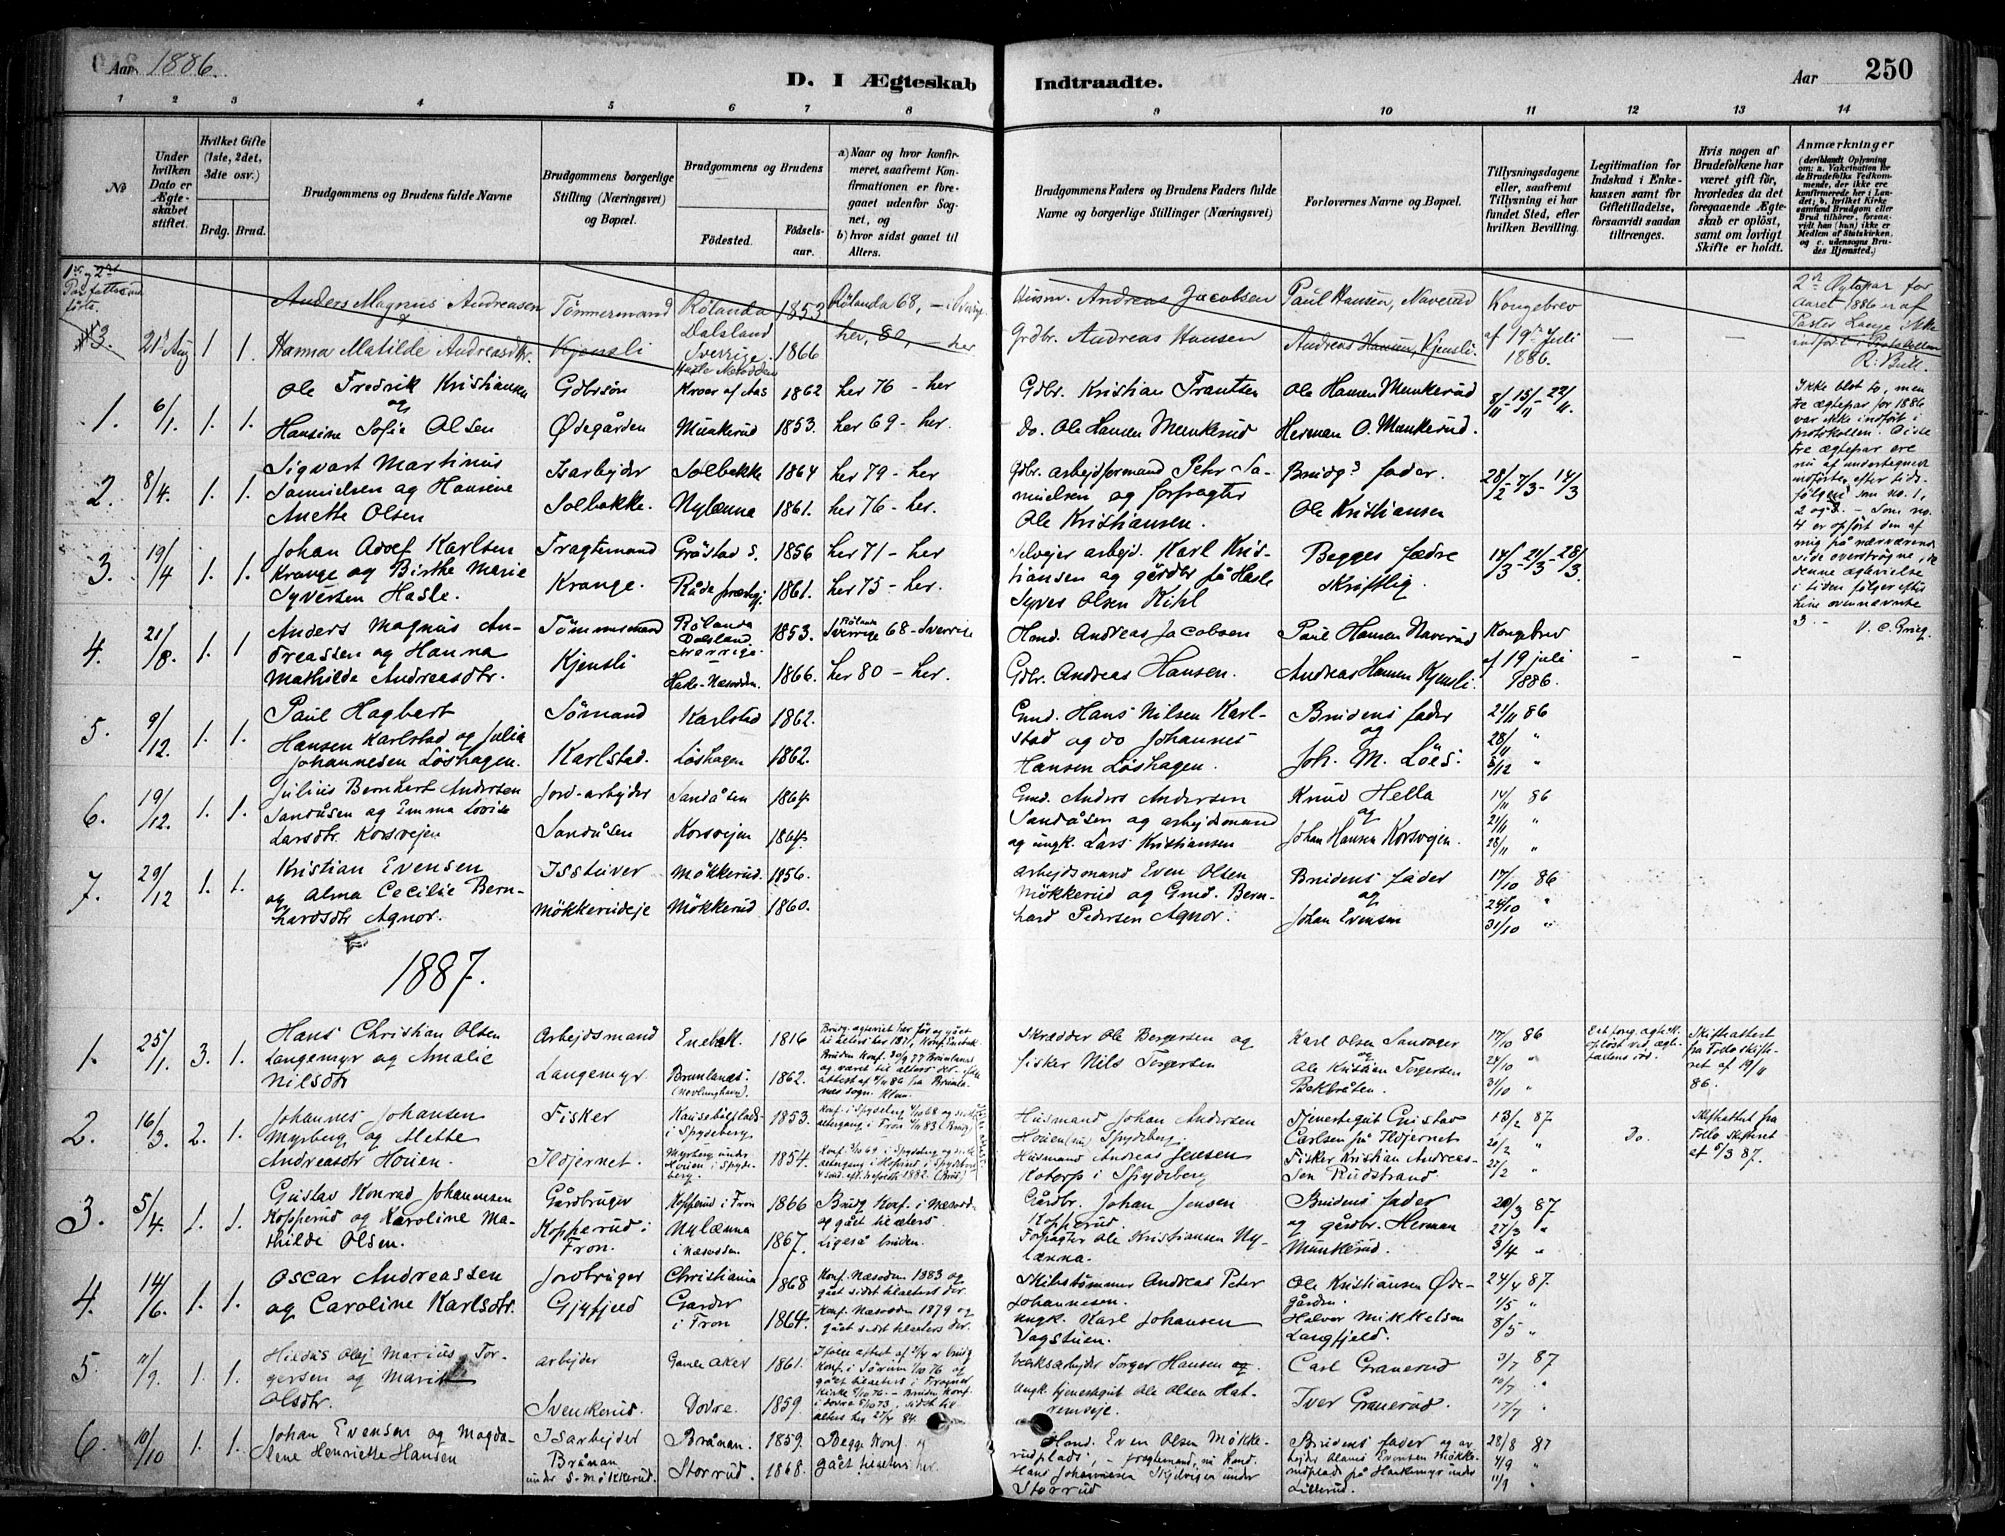 Aar 1886.
D. I Ægteskab Indtraadte.
Aar 250
1 2 3 4 5 6 7 8 9 10 11 12 13 14
No
Under hvilken Dato er Ægteskabet stiftet.
Hvilket Gifte (1ste, 2det, 3die osv.)
Brdg. Brud.
Brudgommens og Brudens fulde Navne
Brudgommens borgerlige Stilling (Næringsvei) og Bopæl.
Brudgommens og Brudens
Fødested. Fødselsaar.
a) Naar og hvor konfirmeret, saafremt Konfirmationen er foregaaet udenfor Sognet, og
b) hvor sidst gaaet til Alters.
Brudgommens Faders og Brudens Faders fulde Navne og borgerlige Stillinger (Næringsvei)
Forlovernes Navne og Bopæl.
Tillysningsdagene eller, saafremt Tillysning ei har fundet Sted, efter hvilken Bevilling.
Legitimation for Indskud i Enkekassen samt for Giftetilladelse, forsaavidt saadan tiltrænges.
Hvis nogen af Brudefolkene har været gift før, hvorledes da det foregaaende Ægteskab er opløst, samt om lovligt Skifte er holdt.
Anmærkninger
3. 21 Aug 1. 1.
Anders Magnus Andreasen
Hanna Matilde Andreasdtr.
Tømmermand Kjensli
Rølanda Dalsland Sverige 1853
Hasle Nesodden 1866
Rølanda 68, - Sverige
her, 80, - her
Husm. Andreas Jacobsen
Grdbr. Andreas Hansen
Paul Hansen, Naverud
Andreas Hansen, Kjensli
Kongebrev af 19de Juli 1886.
2 Ægtepar for Aaret 1886 er af Pastor Lange ikke indført i Protokollen R. Bull.
1. 6/1. 1. 1.
Ole Fredrik Kristiansen og
Hansine Sofie Olsen
Gdbrsøn Ødegården
Kroer af Aas 1862 her 76 - her
Munkerud 1853. her 69 - her.
Gdbr. Kristian Frantsen
Do. Ole Hansen Munkerud
Ole Hansen Munkerud
Herman O. Munkerud.
8/11 - 15/11 - 22/11.
Ikke blot to, men tre ægtepar for 1886 var ikke indført i protokollen. Disse tre ægtepar ere nu af undertegnede indførte, efter tidsfølgen som no. 1, 2 og 3. - Som no. 4 er opført den af mig på nærværende side overstrøgne, da denne ægtevielse i tiden følger efter hine ovennævnte 3. - V. C. Grieg.
2. 8/4. 1. 1.
Sigvart Martinus
Samuelsen og Hansine
Anette Olsen
Isarbejder Solbakke.
Solbakke 1864 her 79 - her
Nylænna 1861. her 76 - her.
Gdbr. arbejdsformand Pehr Samuelsen og forpagter
Ole Kristiansen.
Brudgs fader.
Ole Kristiansen
28/2 - 7/3 - 14/3
3. 19/4 1. 1.
Johan Adolf Karlsen
Krange og Birthe Marie
Syversen Hasle.
Fragtemand Krange.
Gråstad S. 1856 her 71 - her
Råde præstgj. 1861. her 75 - her.
Selvejer arbejd. Karl Kristiansen og gårdbr på Hasle
Syver Olsen Kihl
Begges fædre
skriftlig
14/3 - 21/3 - 28/3.
4. 21/8. 1. 1
Anders Magnus Andreassen og Hanna
Mathilde Andreasdtr.
Tømmermand Kjensli
Rølanda Dalsland Sverrige. 1853. Rølanda Sverrige 68 - Sverrige
Hasle-Næsodden. 1866. her 80 - her.
Hmd. Andreas Jacobsen
Gdbr. Andreas Hansen.
Paul Hansen Naverud
Andreas Hansen Kjensli
Kongebrev af 19 juli 1886.
- -
5. 9/12. 1. 1.
Paul Hagbart
Hansen Karlstad og Julia
Johannesen Løshagen.
Sømand Karlstad.
Karlstad 1862.
Løshagen 1862.
Gmd. Hans Nilsen Karlstad og do Johannes
Hansen Løshagen.
Brudens fader
og
Joh. M. Löes.
21/11 86
28/11 "
5/12 "
6. 19/12. 1. 1.
Julius Bernhart Andersen
Sandåsen og Emma Lovise
Larsdtr. Korsvejen
Jord-arbejder Sandåsen
Sandåsen 1864.
Korsvejen 1864.
Gmd. Anders Andersen
Sandåsen og arbejdsmand
og ungk. Lars Kristiansen
Knud Hella
og
Johan Hansen Korsvejen.
14/11 86
21/11 "
28/11 "
7. 29/12 1. 1.
Kristian Evensen
og Alma Cecilie Bernhardsdtr Agnor.
Isstuver Møkkerudeje
Møkkerud. 1856.
Møkkerud 1860.
Arbejdsmand Even Olsen
Møkkerud og Gmd. Bernhard Pedersen Agnor.
Brudens fader
og
Johan Evensen
17/10 86
24/10 "
31/10 "
1887.
1. 25/1. 3. 1.
Hans Christian Olsen
Langemyr og Amalie
Nilsdtr
Arbejdsmand Langemyr.
Enebak. 1816
Brunlanes (Nevlunghavn). 1862.
Skrædder Ole Bergersen og
fisker Nils Torgersen
Karl Olsen Sandvger
og
Ole Kristian Torgersen
Bakbråten.
17/10 86
24/10 "
31/10 "
Det forg. ægtesk. opløst ved ægtefællens død.
Skifteattest fra Follo skifteret af 19/11 86.
2. 16/3. 2. 1.
Johannes Johansen
Myrberg og Mette
Andreasdtr Houen.
Fisker Ildjernet.
i Spydeberg. 1853.
Myrberg under Houen i Spydeberg. 1854.
Husmand Johan Andersen
Houen Spydeberg.
Husmand Andreas Jensen
Kotorp i Spydeberg
Tjenestegut Gustav
Carlsen på Ildjernet
Fisker Kristian Andreassen Rudstrand
13/2 87
20/2 "
27/2 "
Do.
Skifteattest fra Follo skifteret af 5/3 87.
3. 5/4. 1. 1.
Gustav Konrad Johannesen
Kopperud og Karoline Mathilde Olsen.
Gårdbruger Kopperud i Fron.
Kopperud i Fron 1866
Nylænna i Næsodden 1867.
Brudg. Konf. i Næsodd. og gået til alters. Ligeså bruden.
Gårdbr. Johan Jensen
Kopperud.
Forpagter Ole Kristiansen Nylænna.
Brudens fader
og gårdbr. Herman
Munkerud.
20/3 87
27/3 "
3/4 "
4. 14/6. 1. 1.
Oscar Andreassen
og Caroline Karlsdtr.
Jordbruger Gjyfjeld
Christiania 1868
Garder i Fron 1864.
Konf. Næsodden 1883 og gået sidst til alters der.
Konf. Næsodden 1879 og gået sidst til alters der.
Skibstømmer Andreas Peter
Johannesen.
ungk. Karl Johansen
Vagstuen.
Ole Kristiansen Ødegården.
Halvor Mikkelsen
Langfjeld.
24/4 87.
1/5 "
8/5 "
5. 11/9. 1. 1.
Hildus Olaj Marius Torgersen og Marit
Olsdtr.
arbejder Svenkerud.
Gamle Aker 1861.
Dovre. 1859.
Værksarbejder Torger Hansen og
ungk. tjenestegut Ole Olsen Hatremseje.
Carl Granerud
Iver Granerud.
3/7 87
10/7 "
17/7 "
6. 10/10 1. 1.
Johan Evensen og Magdalene Henriette Hansen
Isarbejder Brånan under S-Møkkerud.
Brånan. 1859.
Storrud. 1868.
Begge Konf. og gået til alters her.
Hmd. Even Olsen Møkkerudplads, - fragtemand, nu hmd.
Hans Johannesen under
Storrud
Brudens fader og arbejder Evensen Møkkerudplads på under
Lillerud.
28/8 87
4/9 "
11/9 "